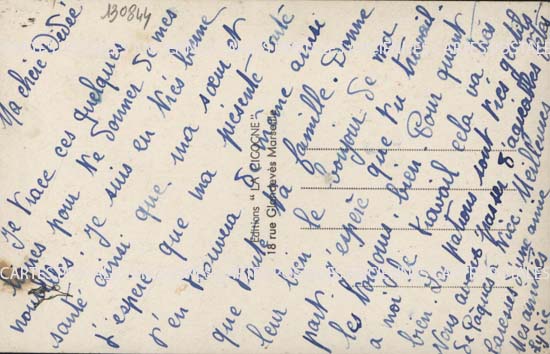 130844
Ma chère Dédée
Je trace ces quelques
lignes pour te donner de mes
nouvelles. Je suis en très bonne
santé ainsi que ma sœur et
j'espère que ma présente carte
t'en trouvera de même ainsi
que toute ta famille. Donne
leur bien le bonjour de ma
part. J'espère que tu travail-
les toujours bien. Pour quant
a moi le travail cela va très
bien. Les patrons sont très gentils
Vous avez passer d'agréables fêtes
de Pâques
Meilleures
Mes amitiés
Lydie
Editions "LA CIGOGNE"
18 rue Glandevès Marseille